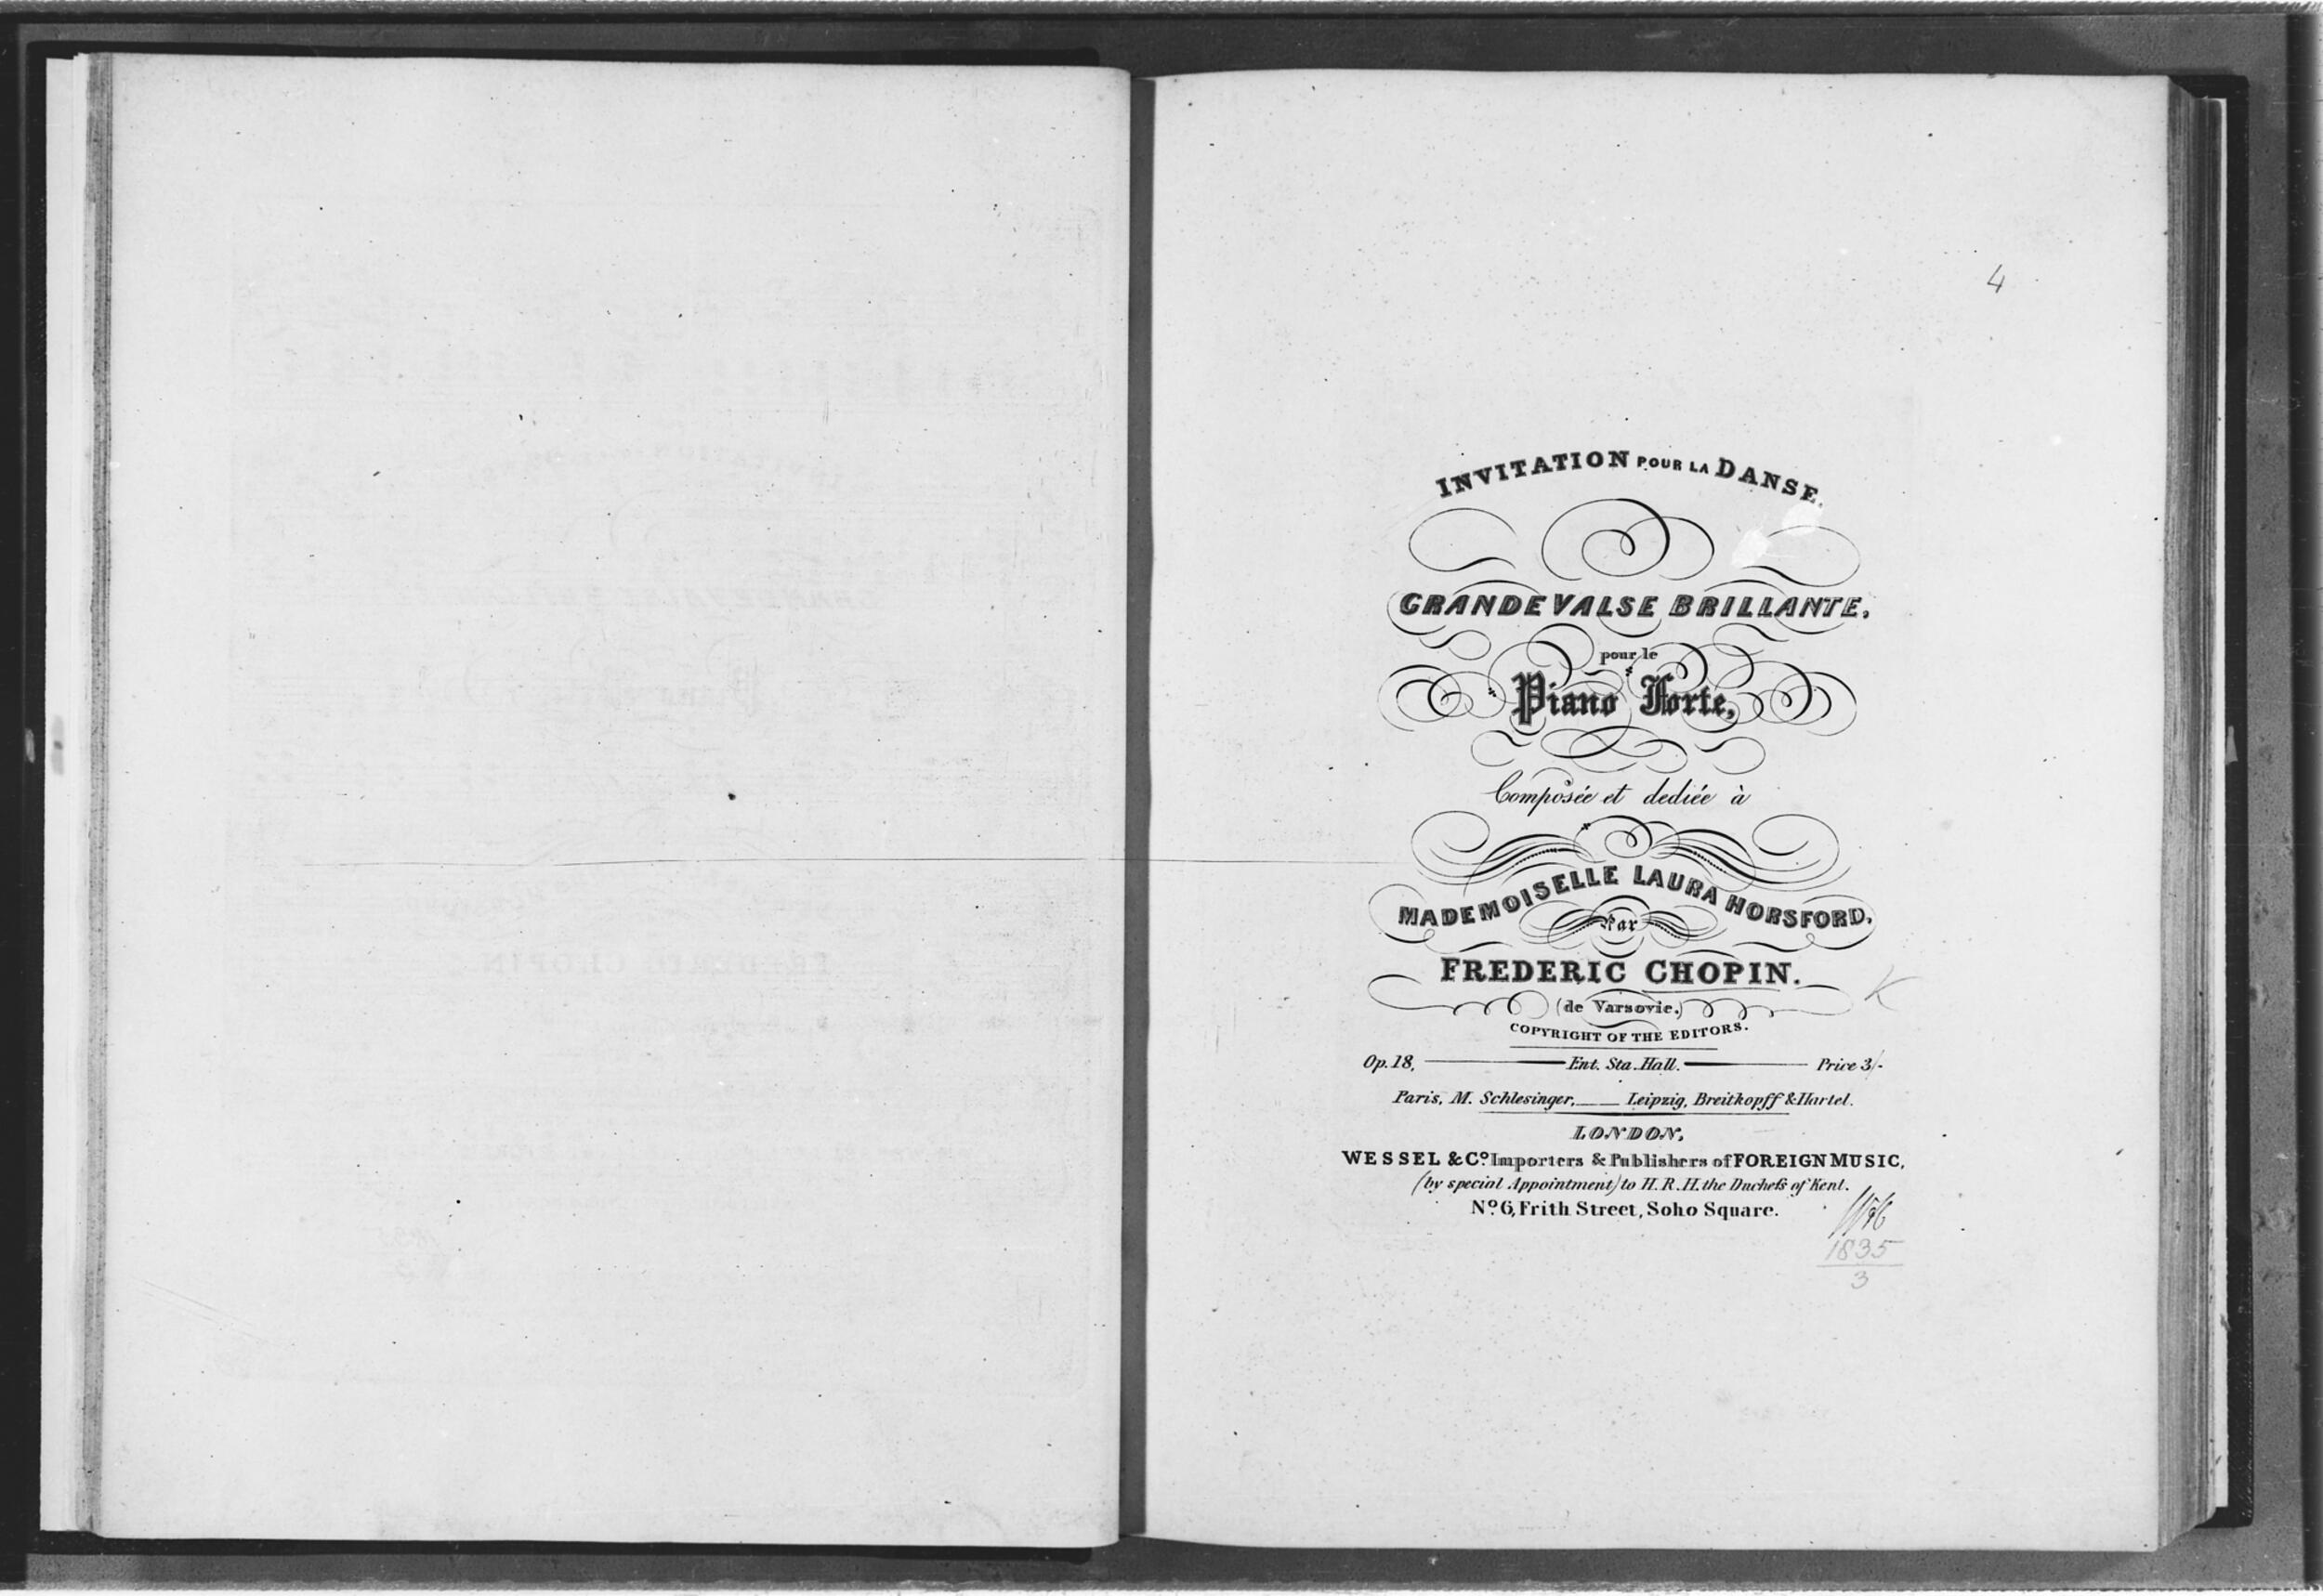 4
INVITATION POUR LA DANSE.
GRANDE VALSE BRILLANTE,
pour le
Piano Forte,
Composée et dediée à
MADEMOISELLE LAURA HORSFORD,
Par
FREDERIC CHOPIN.
K
(de Varsovie.)
COPYRIGHT OF THE EDITORS.
Op. 18, Ent. Sta. Hall. Price 3/-
Paris, M. Schlesinger, Leipzig, Breitkopff & Hartel.
LONDON,
WESSEL & Co. Importers & Publishers of FOREIGN MUSIC,
(by special Appointment) to H.R.H. the Duchess of Kent.
No. 6, Frith Street, Soho Square.
1835
3